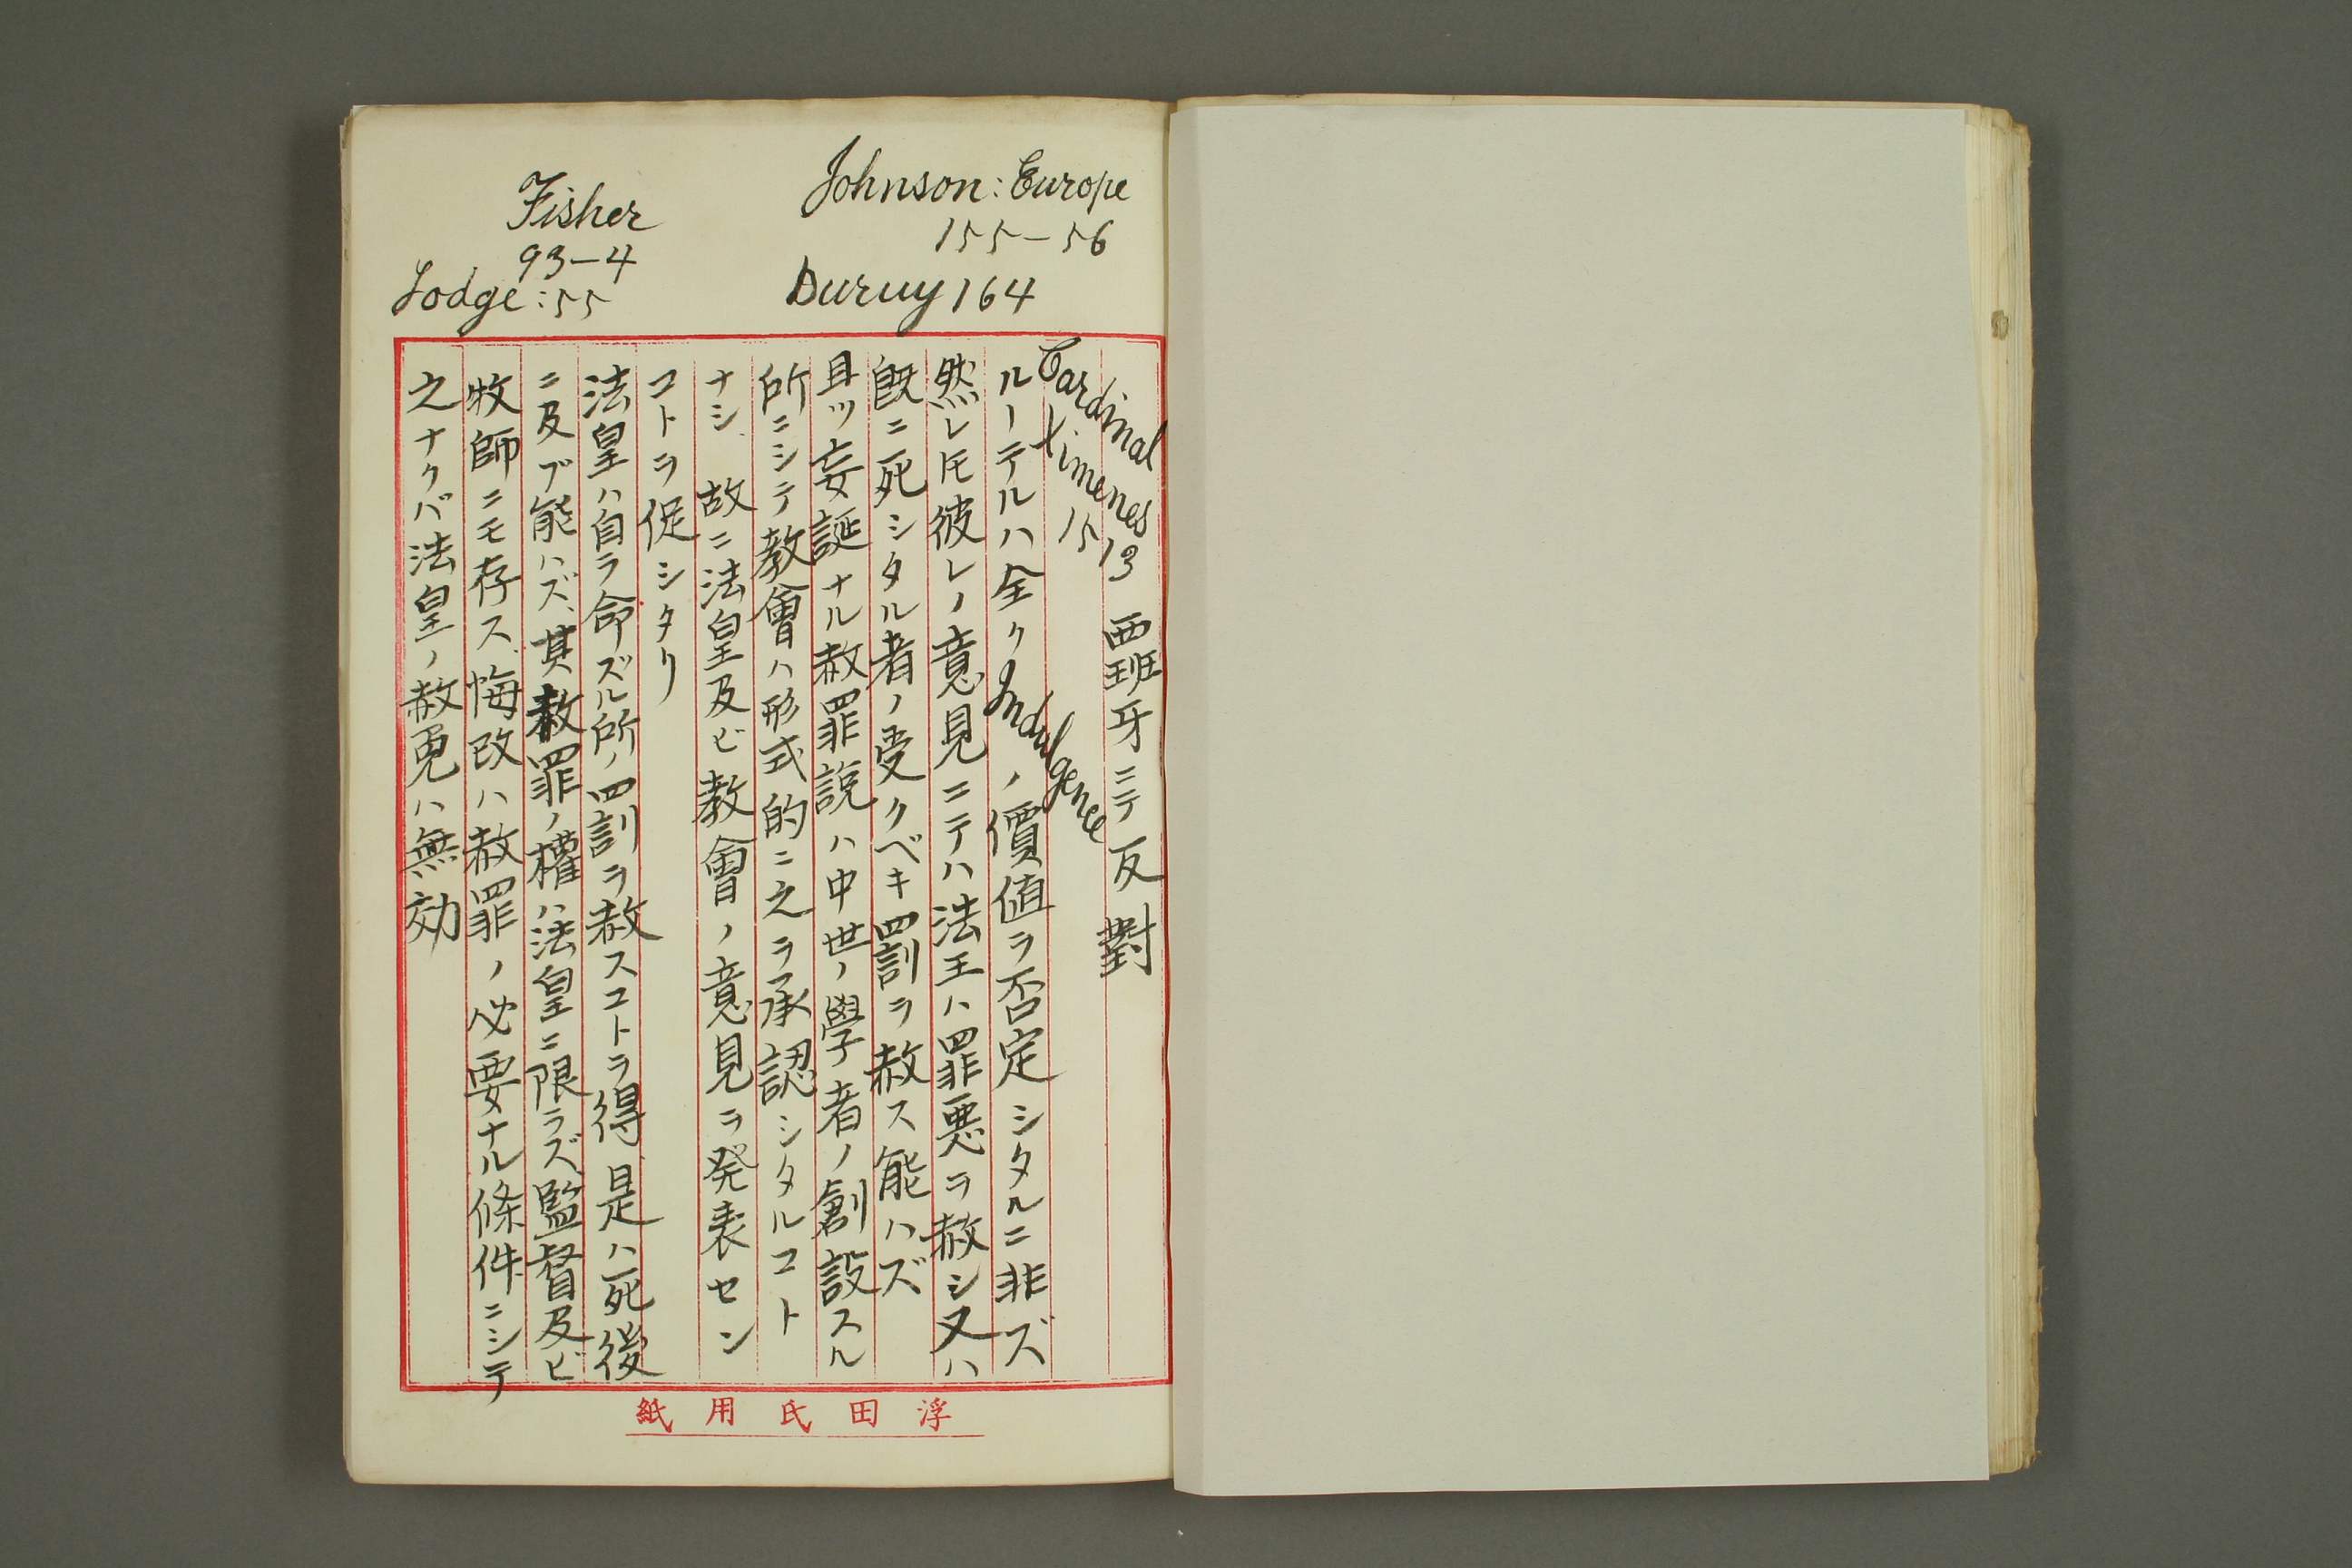 Johnson: Europe
155-56
Duruy 164
Fisher
93-4
Lodge: 55
Cardinal Ximenes 1513 西班牙ニテ反對
ルーテルハ全クIndulgenceノ價値ヲ否定シタルニ非ズ
然レ𪜈彼レノ意見ニテハ法王ハ罪悪ヲ赦シ又ハ
既ニ死シタル者ノ受クベキ罰ヲ赦ス能ハズ
且ツ妄誕ナル赦罪説ハ中世ノ學者ノ創設スル
所ニシテ教會ハ形式的ニ之ヲ承認シタルコト
ナシ、故ニ法皇及ビ教會ノ意見ヲ発表セン
コトヲ促シタリ
法皇ハ自ラ命ズル所ノ罰ヲ赦スコトヲ得、是ハ死後
ニ及ブ能ハズ、其赦罪ノ權ハ法皇ニ限ラズ、監督及ビ
牧師ニモ存ス、悔改ハ赦罪ノ必要ナル條件ニシテ
之ナクバ法皇ノ赦免ハ無効
浮田氏用紙